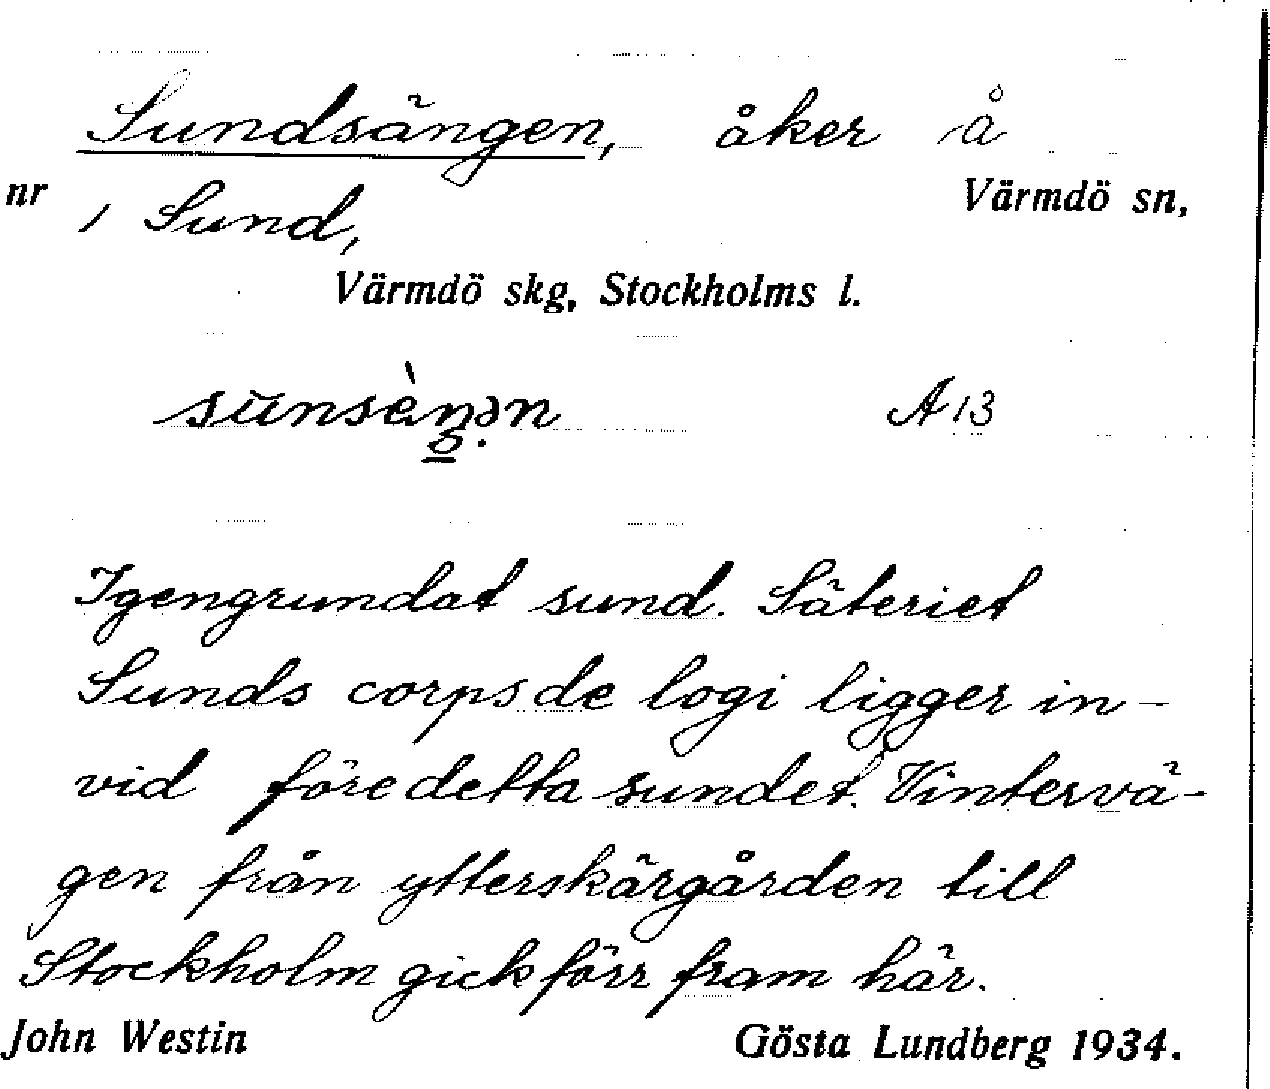 Sundsängen, åker å
nr 1 Sund, Värmdö sn,
Värmdö skg, Stockholms l.
A 13
Igengrundat sund. Säteriet
Sunds corps de logi ligger in-
vid före detta sundet. Vintervä-
gen från ytterskärgården till
Stockholm gick förr fram här.
John Westin Gösta Lundberg 1934.